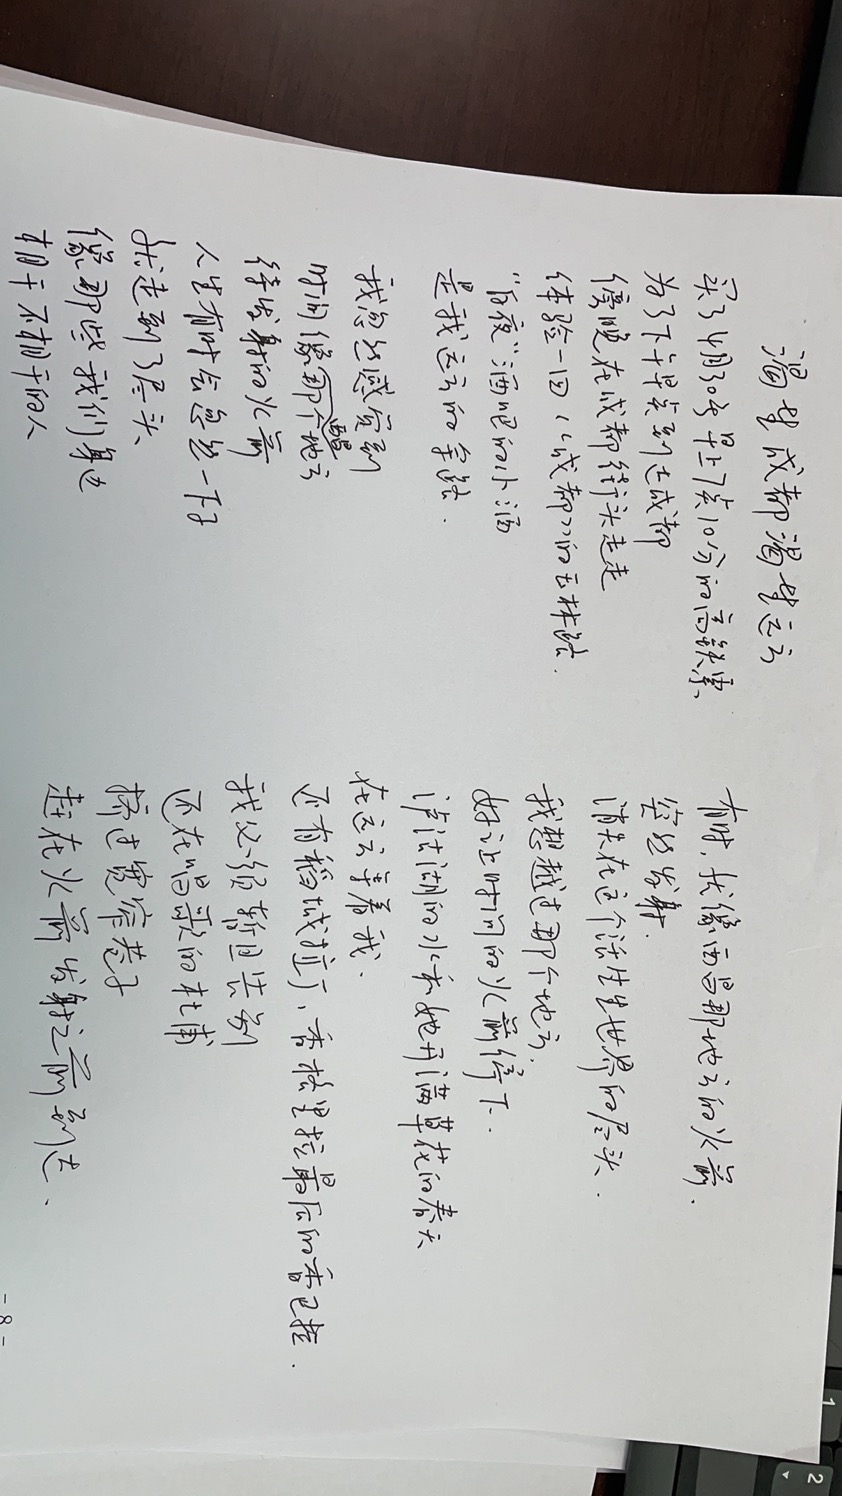 渴望成都渴望远方
买了4月30号早上7点10分的高铁票
为了下午早点到达成都
傍晚在成都街头走走
体验一回《成都》的玉林路.
“白夜”酒吧的小酒
是我远方的余路.
我忽然感觉到
西昌
时间像那个地方
待发射的火箭
人生有时会忽然一下子
就走到了尽头
像那些我们身边
相干不相干的人
有时,就像西昌那地方的火箭.
突然发射.
消失在这个活生生世界的尽头.
我想越过那个地方.
好让时间的火箭停下.
泸沽湖的水和她开满草花的春天
在远方等着我.
还有稻城拉丁,香格里拉最后的香巴拉.
我必须暂且告别
还在唱歌的杜甫
挤过宽窄巷子
赶在火箭发射之前到达.
- 8 -
1
2